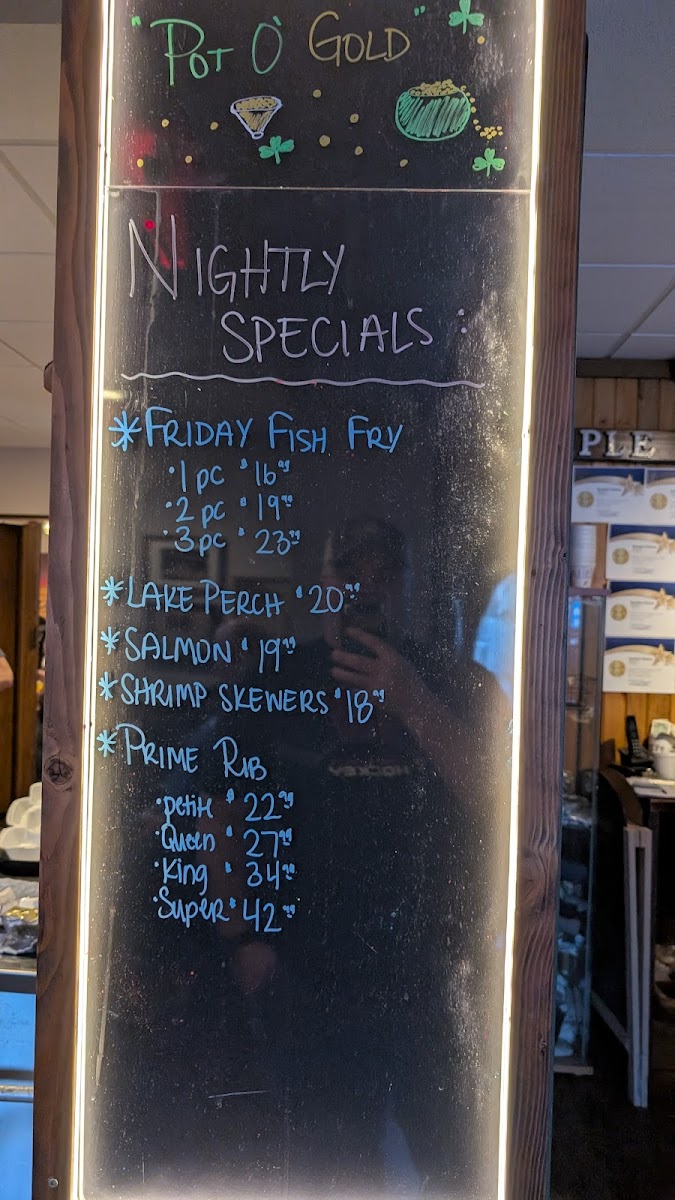 "Pot O' Gold"
Nightly
Specials:
*Friday Fish Fry
·1 pc $16.99
·2 pc $19.99
·3 pc $23.99
*Lake Perch $20.99
*Salmon $19.99
*Shrimp Skewers $18.99
*Prime Rib
·petite $22.99
·Queen $27.99
·King $34.99
·Super $42.99
PLE